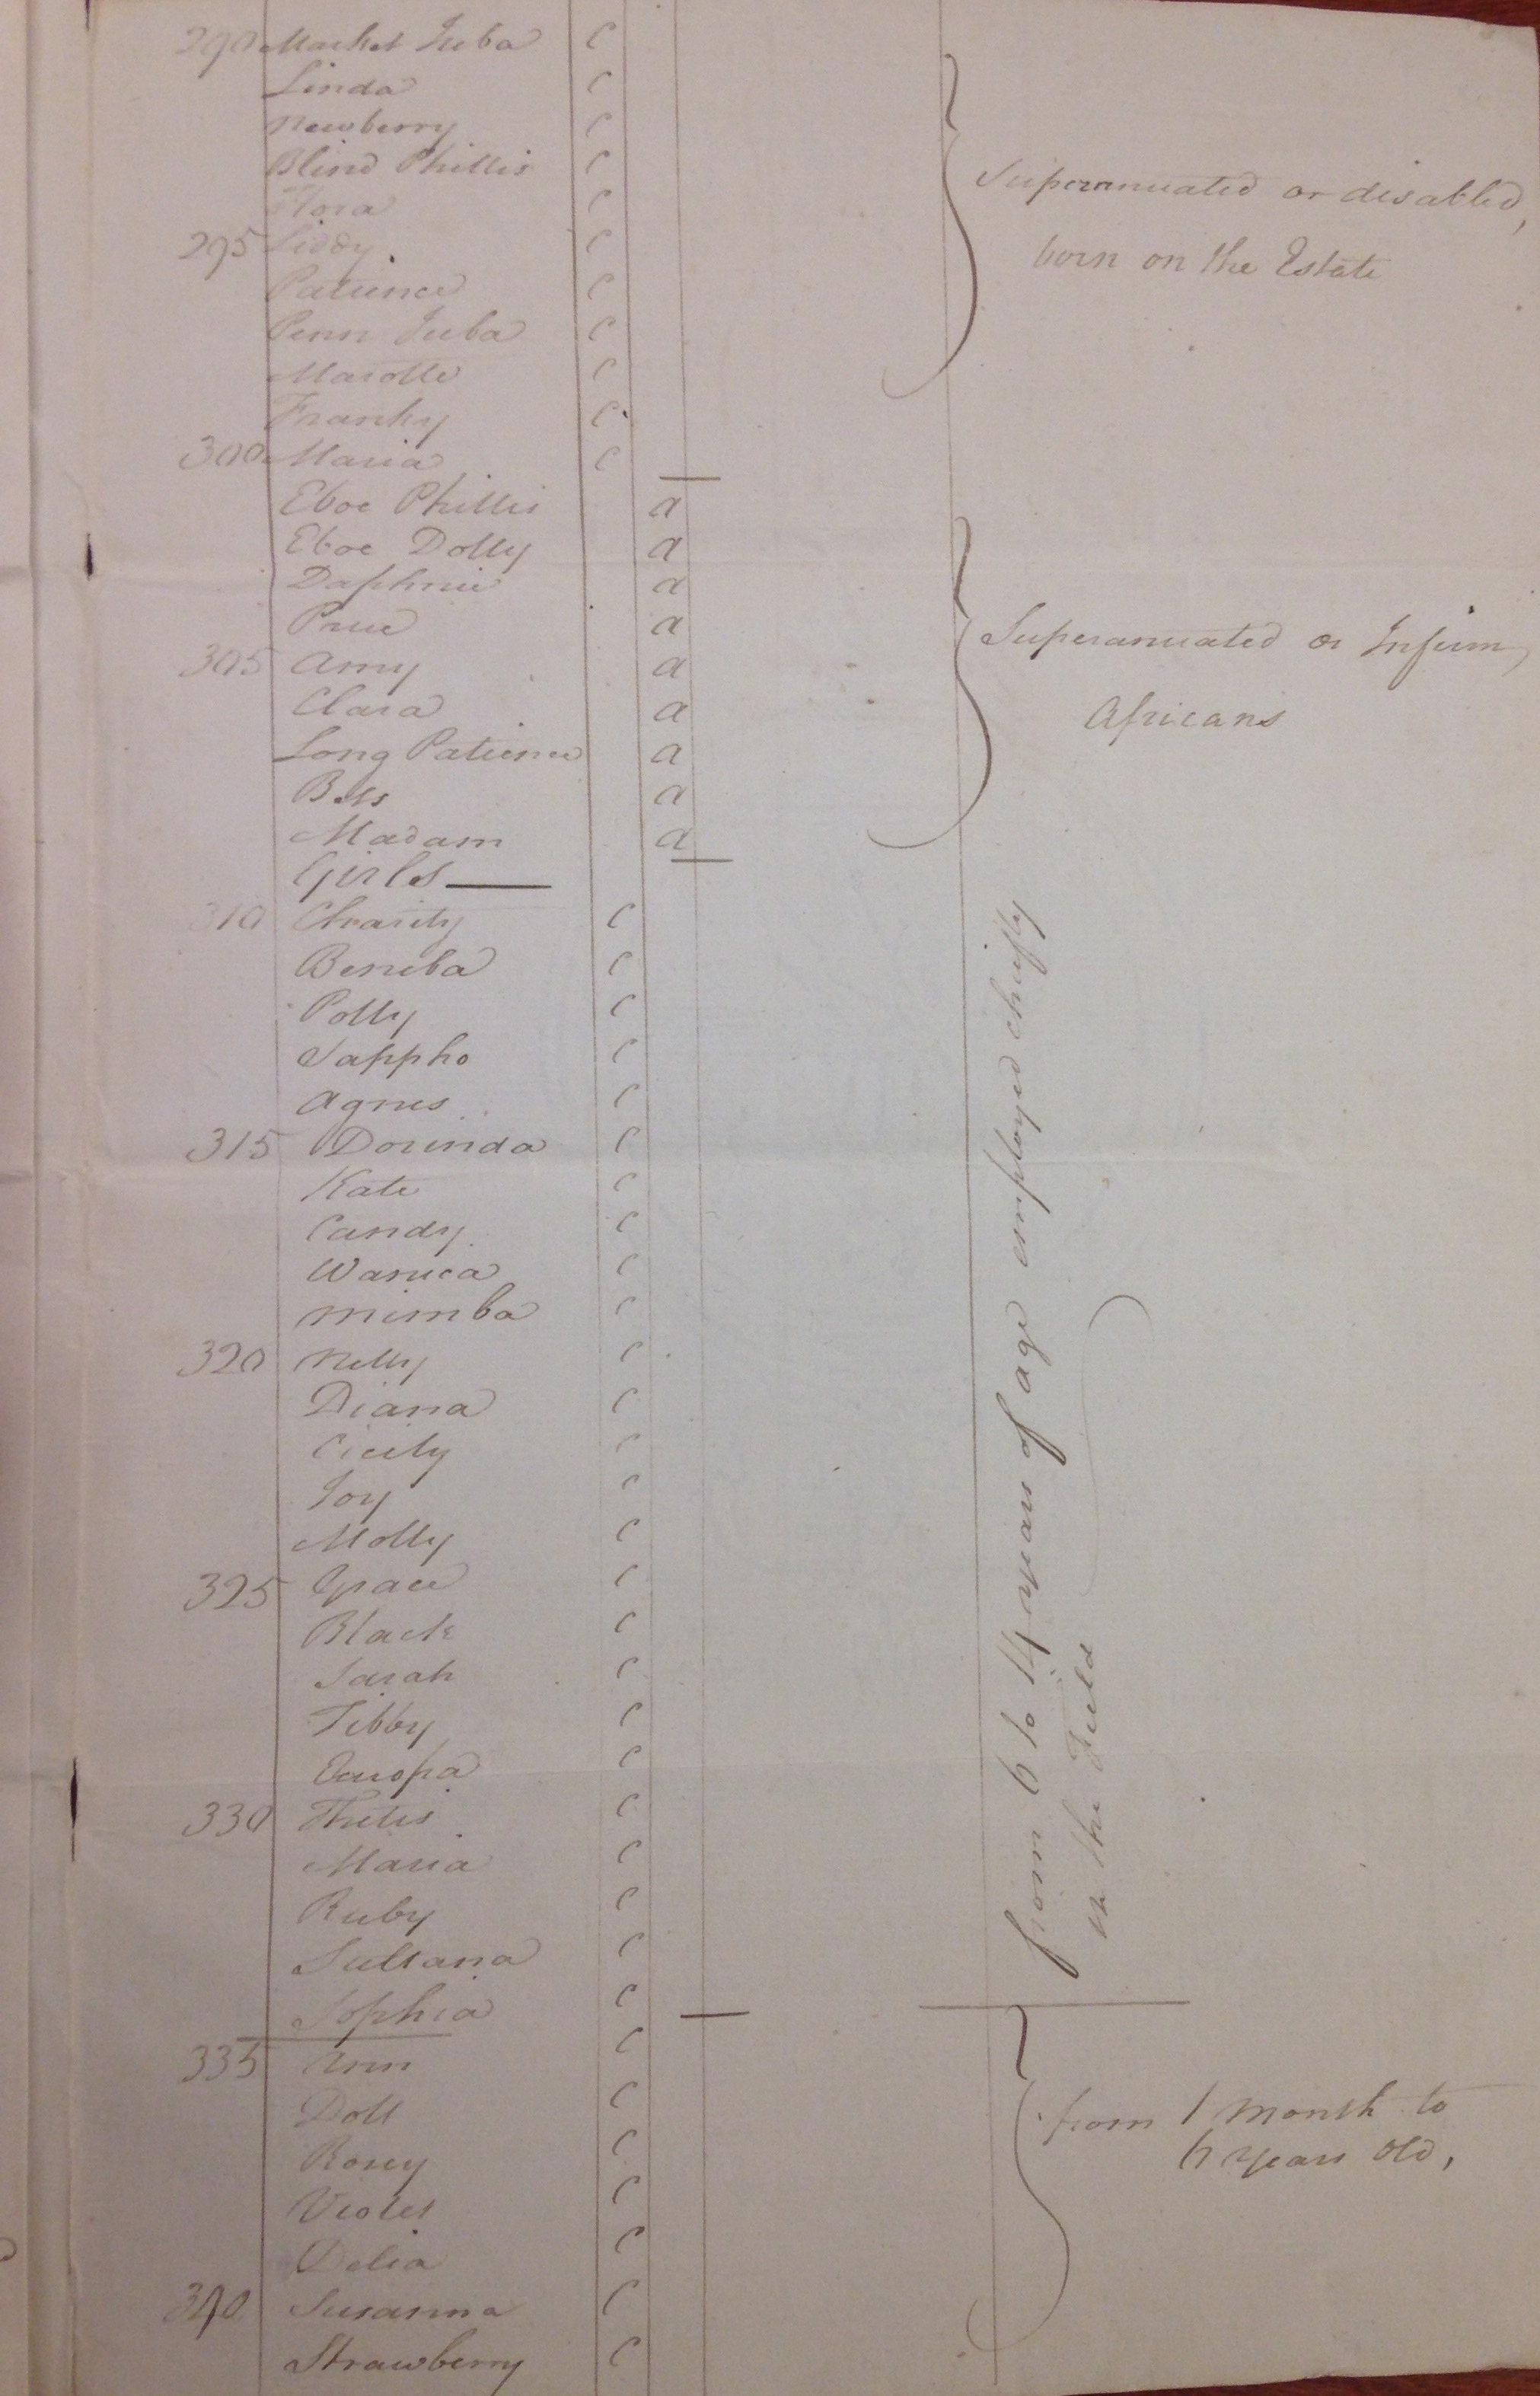 290 Market Juba C
Linda C
Newberry C
Blind Phillis C
Flora C
295 Siddy C
Patience C
Penn Juba C
Marotte C
Franky C
300 Maria C
Superanuated or disabled,
born on the Estate
Eboe Phillis a
Eboe Dolly a
Daphnie a
Prue a
305 Amy a
Clara a
Long Patience a
Bess a
Madam a
Superanuated or Infirm,
Africans
Girls
310 Charity C
Beneba C
Polly C
Sappho C
Agnes C
315 Dorinda C
Kate C
Candy C
Wanica C
Mimba C
320 Nelly C
Diana C
Cicily C
Joy C
Molly C
325 Grace C
Black C
Sarah C
Tibby C
Europa C
330 Thetis C
Maria C
Ruby C
Sultana C
Sophia C
from 6 to 14 years of age employed chiefly
in the Field
335 Ann C
Doll C
Rosey C
Violet C
Delia C
340 Susanna C
Strawberry C
from 1 Month to
6 years old,